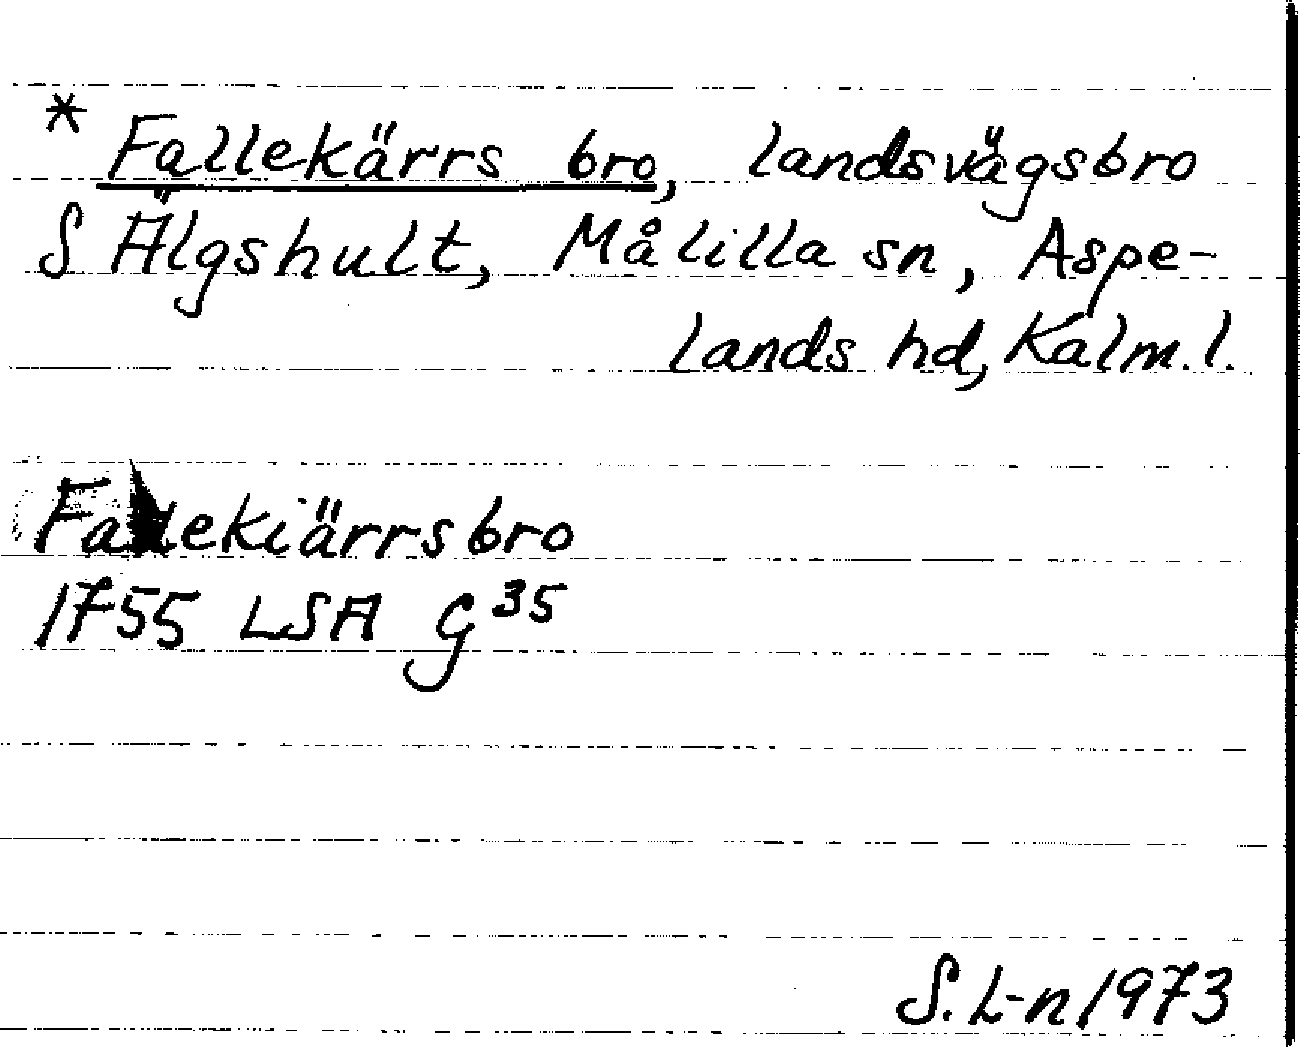 * Fallekärrs bro, landsvägsbro
S Älgshult, Målilla sn, Aspe-
lands hd, Kalm. l.
Fallekiärrsbro
1755 LSA G 35
S. L-n 1973